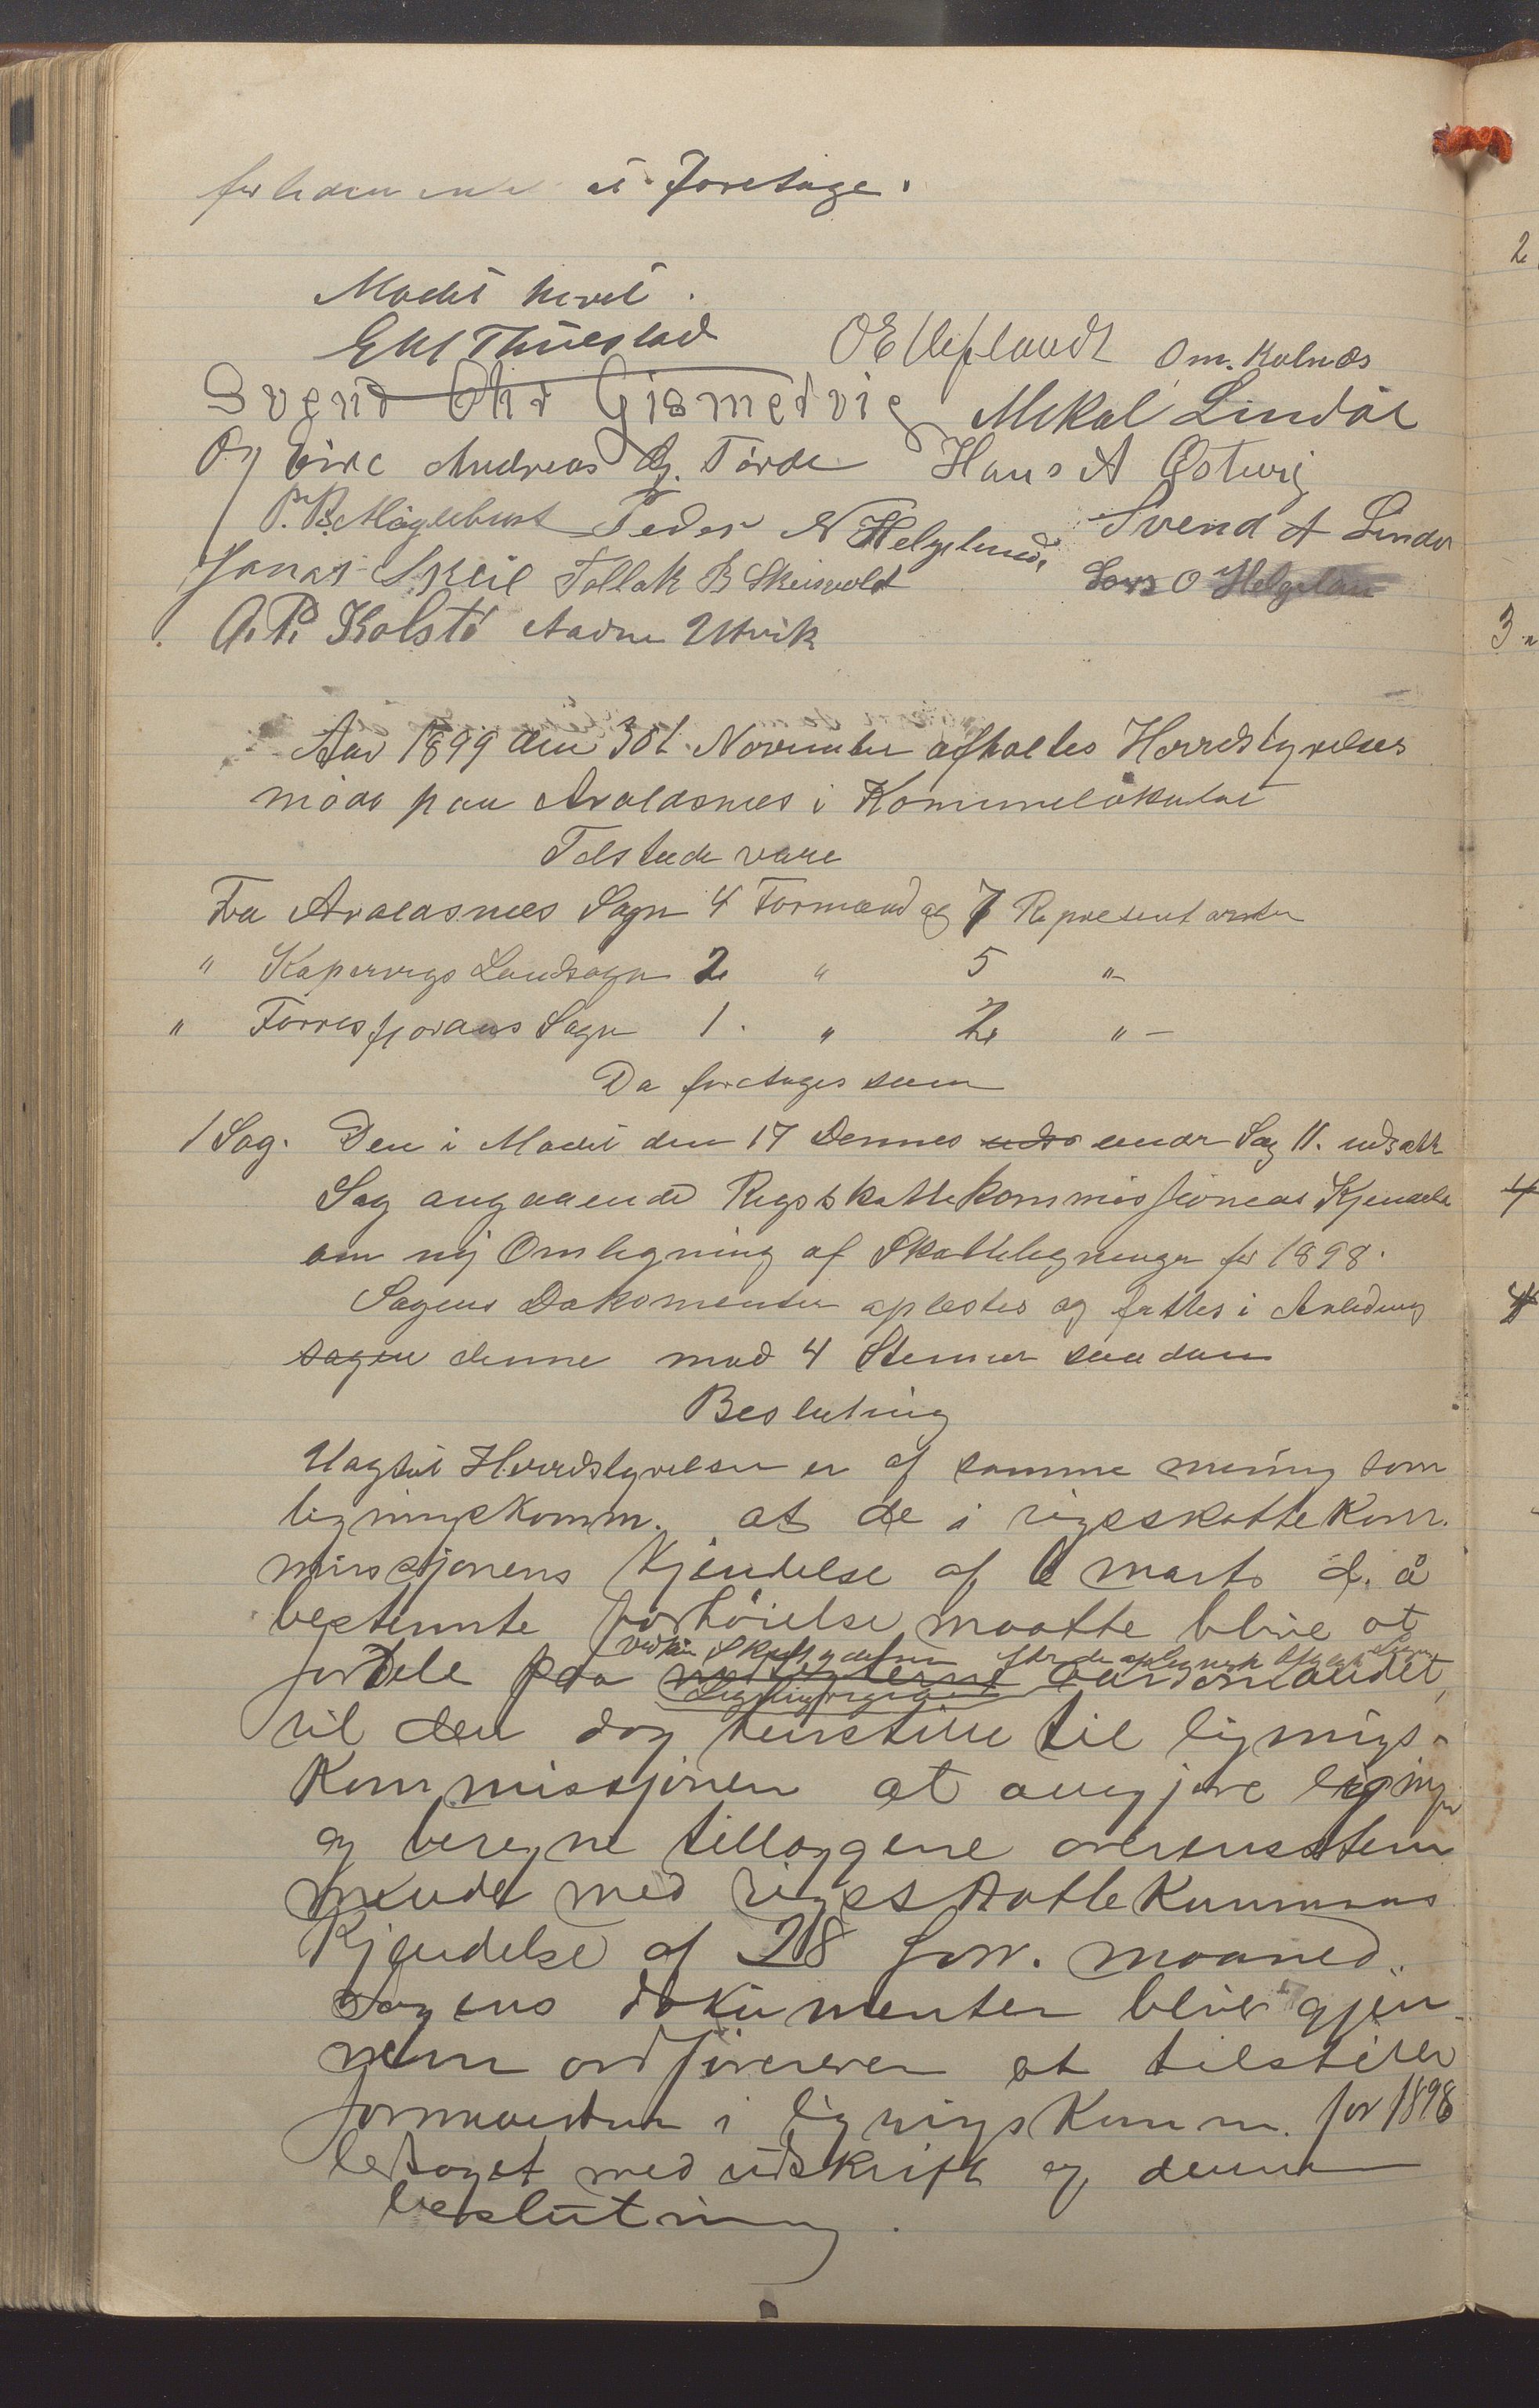 at foretage.
Mødet hevet.
E M Thuestad O E Veflandt Om. Kolnæs
Svend Chr Gismervig Mikal Lindøe
Og Eire Andreas Gj. Førde Hans A Østevig
P. B. Møglebust Peder N Helgeland, Svend A Lindø
Jonas Skeie Tollak B Skeisvold Lars O Helgelan
A. P. Kolstø Aadne Utvik
Aar 1899 den 30t. November afholtes Herredstyrelses
møde paa Avaldsnes i Komunelokalet
Telstede vare
Fra Avaldsnes Sogn 4 Formænd og 7 Representanter
" Kopervigs Landsogn 2 " 5 "
" Førresfjordens Sogn 1. " 2 " -
Da foretages som
1 Sag. Den i Mødet den 17 Dennes under Sag 11. udsatte
Sag angaaende Rigsskattekommissionens Kjendelse
om ny Omligning af Skatteligningen for 1898.
Sagens Dokomenter oplæstes og fattes i Anledning
sagen denne mod 4 Stemmer saadan
Beslutning
Uagtet Herredstyrelsen er af samme mening som
ligningskomm. at de i rigsskattekom-
missjonens kjendelse af 6 marts d. å
bestemte forhøielse maatte blive at
fordele paa
vedkom Skatydere efter de
til den dog henstille til lignings-
kommissjonen at omgjøre ligningen
og beregne tillæggene overensstem
mende med rigsskattekommens
kjendelse af 28 forr. maaned.
Sagens dokumenter blive gjen-
nem ordføreren at tilstille
formanden i ligningskomm. for 1898
ledsaget med udskrift af denne
beslutning.